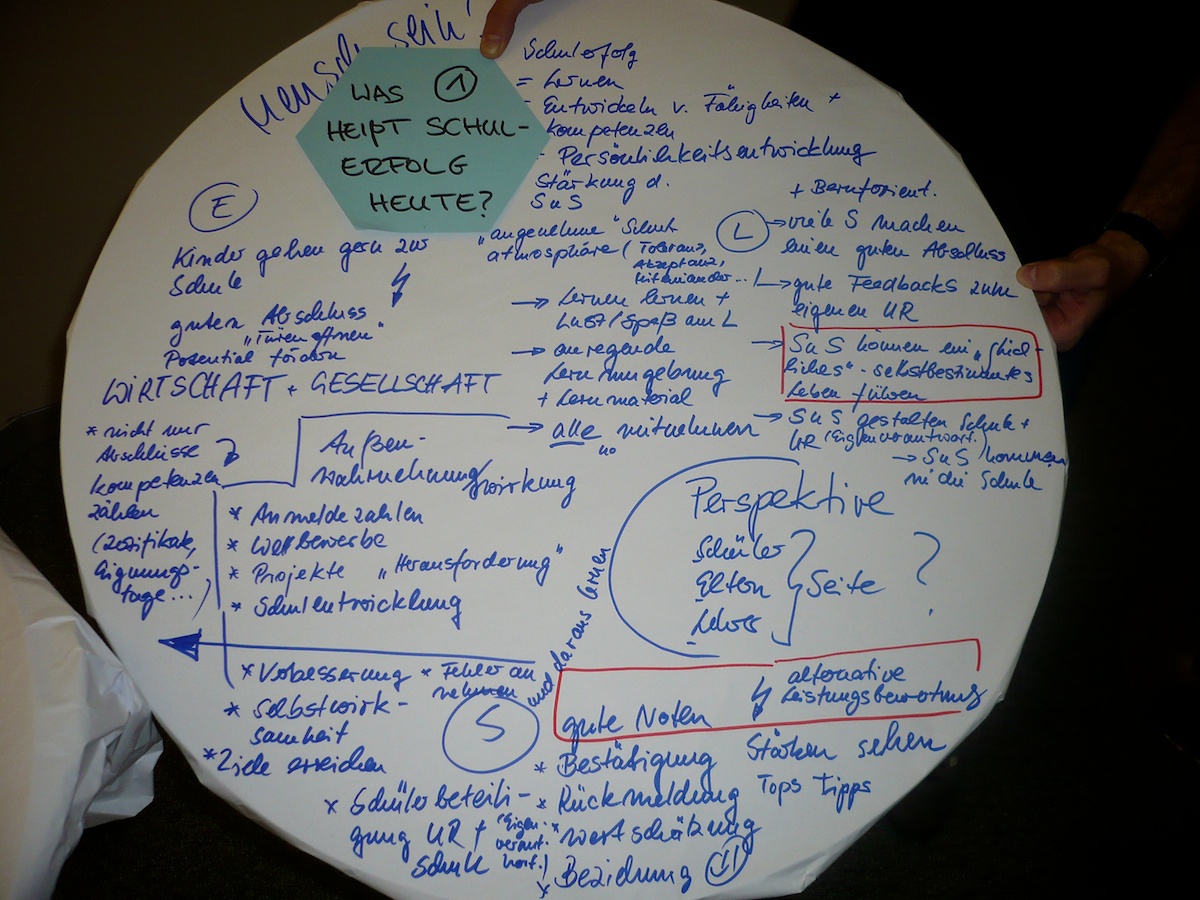 Mensch sein!
WAS 1
HEIßT SCHUL-
ERFOLG
HEUTE?
Schulerfolg
= Lernen
- Entwickeln v. Fähigkeiten +
Kompetenzen
- Persönlichkeitsentwicklung
Stärkung d.
SuS
"angenehme" Schul
atmosphäre (Toleranz,
Akzeptanz,
Miteinander...)
→ Lernen lernen +
Lust/Spaß am L
→ anregende
Lernumgebung
+ Lernmaterial
→ alle mitnehmen
E
Kinder gehen gern zur
Schule
guten Abschluss
"Türen öffnen"
Potential fördern
WIRTSCHAFT + GESELLSCHAFT
* nicht nur
Abschlüsse
Kompetenzen
zählen
(Zertifikate,
Eignungs-
tage...)
Außen-
wahrnehmung/wirkung
* Anmeldezahlen
* Wettbewerbe
* Projekte "Herausforderung"
* Schulentwicklung
+ Beruforient.
L
→ viele S machen
einen guten Abschluss
→ gute Feedbacks zum
eigenen UR
→ SuS können ein "glück-
liches" - selbstbestimmtes
Leben führen
→ SuS gestalten Schule +
UR (Eigenverantwort.)
→ SuS kommen
in die Schule
Perspektive
Schüler
Eltern
Lehrer
Seite ?
* Verbesserung
* Selbstwirk-
samkeit
* Ziele erreichen
* Fehler an
nehmen
und daraus lernen
S
* Schülerbeteili-
gung UR +
Schule
(Eigen-
verant-
wort.)
gute Noten
alternative
Leistungsbewertung
* Bestätigung
* Rückmeldung
* Wertschätzung
* Beziehung !!
Stärken sehen
Tops Tipps